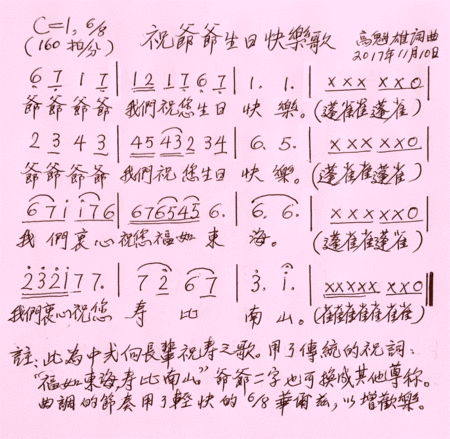 C=1, 6/8
(160 拍/分)
祝爺爺生日快樂歌
高魁雄詞曲
2017年11月10日
6 7 1 7 | 12 17 6 7 | 1. 1. | xxx xxo |
爺爺爺爺 我們祝您生日 快 樂。(蓬雀雀蓬雀)
2 3 4 3 | 45 432 34 | 6. 5. | xxx xxo |
爺爺爺爺 我們祝您生日 快 樂。(蓬雀雀蓬雀)
6 7 i i 7 6 | 676545 6. | 6. 6. | xxx xxo |
我們衷心祝您福如東 海。(蓬雀雀蓬雀)
2321 7 7. | 7 2 6 7 | 3. i. | xxxxx xxo ‖
我們衷心祝您 寿 比 南 山。(雀雀雀雀雀雀雀)
註:此為中式向長輩祝寿之歌。用了傳統的祝詞:
"福如東海寿比南山" 爺爺二字也可換成其他尊称。
曲調的節奏用了輕快的 6/8 華爾茲,以增歡樂。